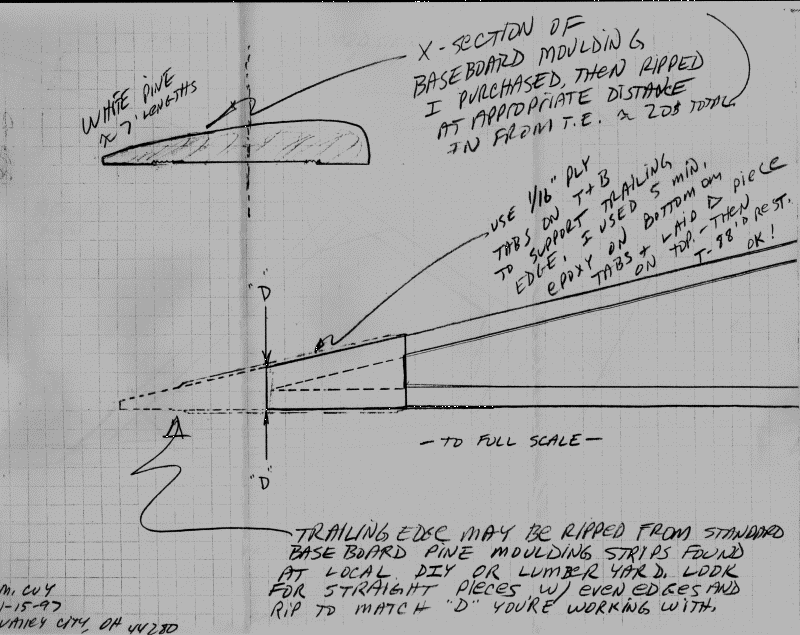 X-SECTION OF
BASEBOARD MOULDING
I PURCHASED, THEN RIPPED
AT APPROPRIATE DISTANCE
IN FROM T.E. ≈ 20$ TOTAL.
WHITE PINE
≈ 7' LENGTHS
USE 1/16" PLY
TABS ON T+B
TO SUPPORT TRAILING
EDGE. I USED 5 MIN.
EPOXY ON BOTTOM OM
TABS + LAID D PIECE
ON TOP. - THEN
T-88'D REST.
OK!
"D"
"D"
- TO FULL SCALE -
TRAILING EDGE MAY BE RIPPED FROM STANDARD
BASE BOARD PINE MOULDING STRIPS FOUND
AT LOCAL DIY OR LUMBER YARD. LOOK
FOR STRAIGHT PIECES W/ EVEN EDGES AND
RIP TO MATCH "D" YOU'RE WORKING WITH.
M. CUY
1-15-97
VALLEY CITY, OH 44280